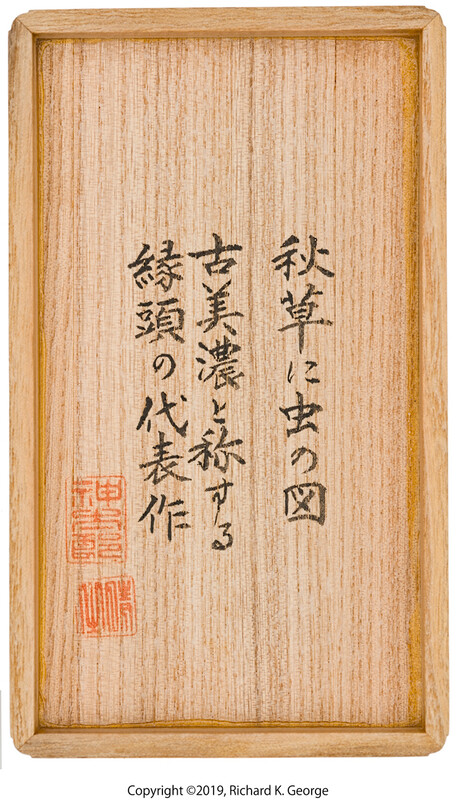 秋草に虫の図
古美濃と称する
縁頭の代表作
Copyright ©2019, Richard K. George